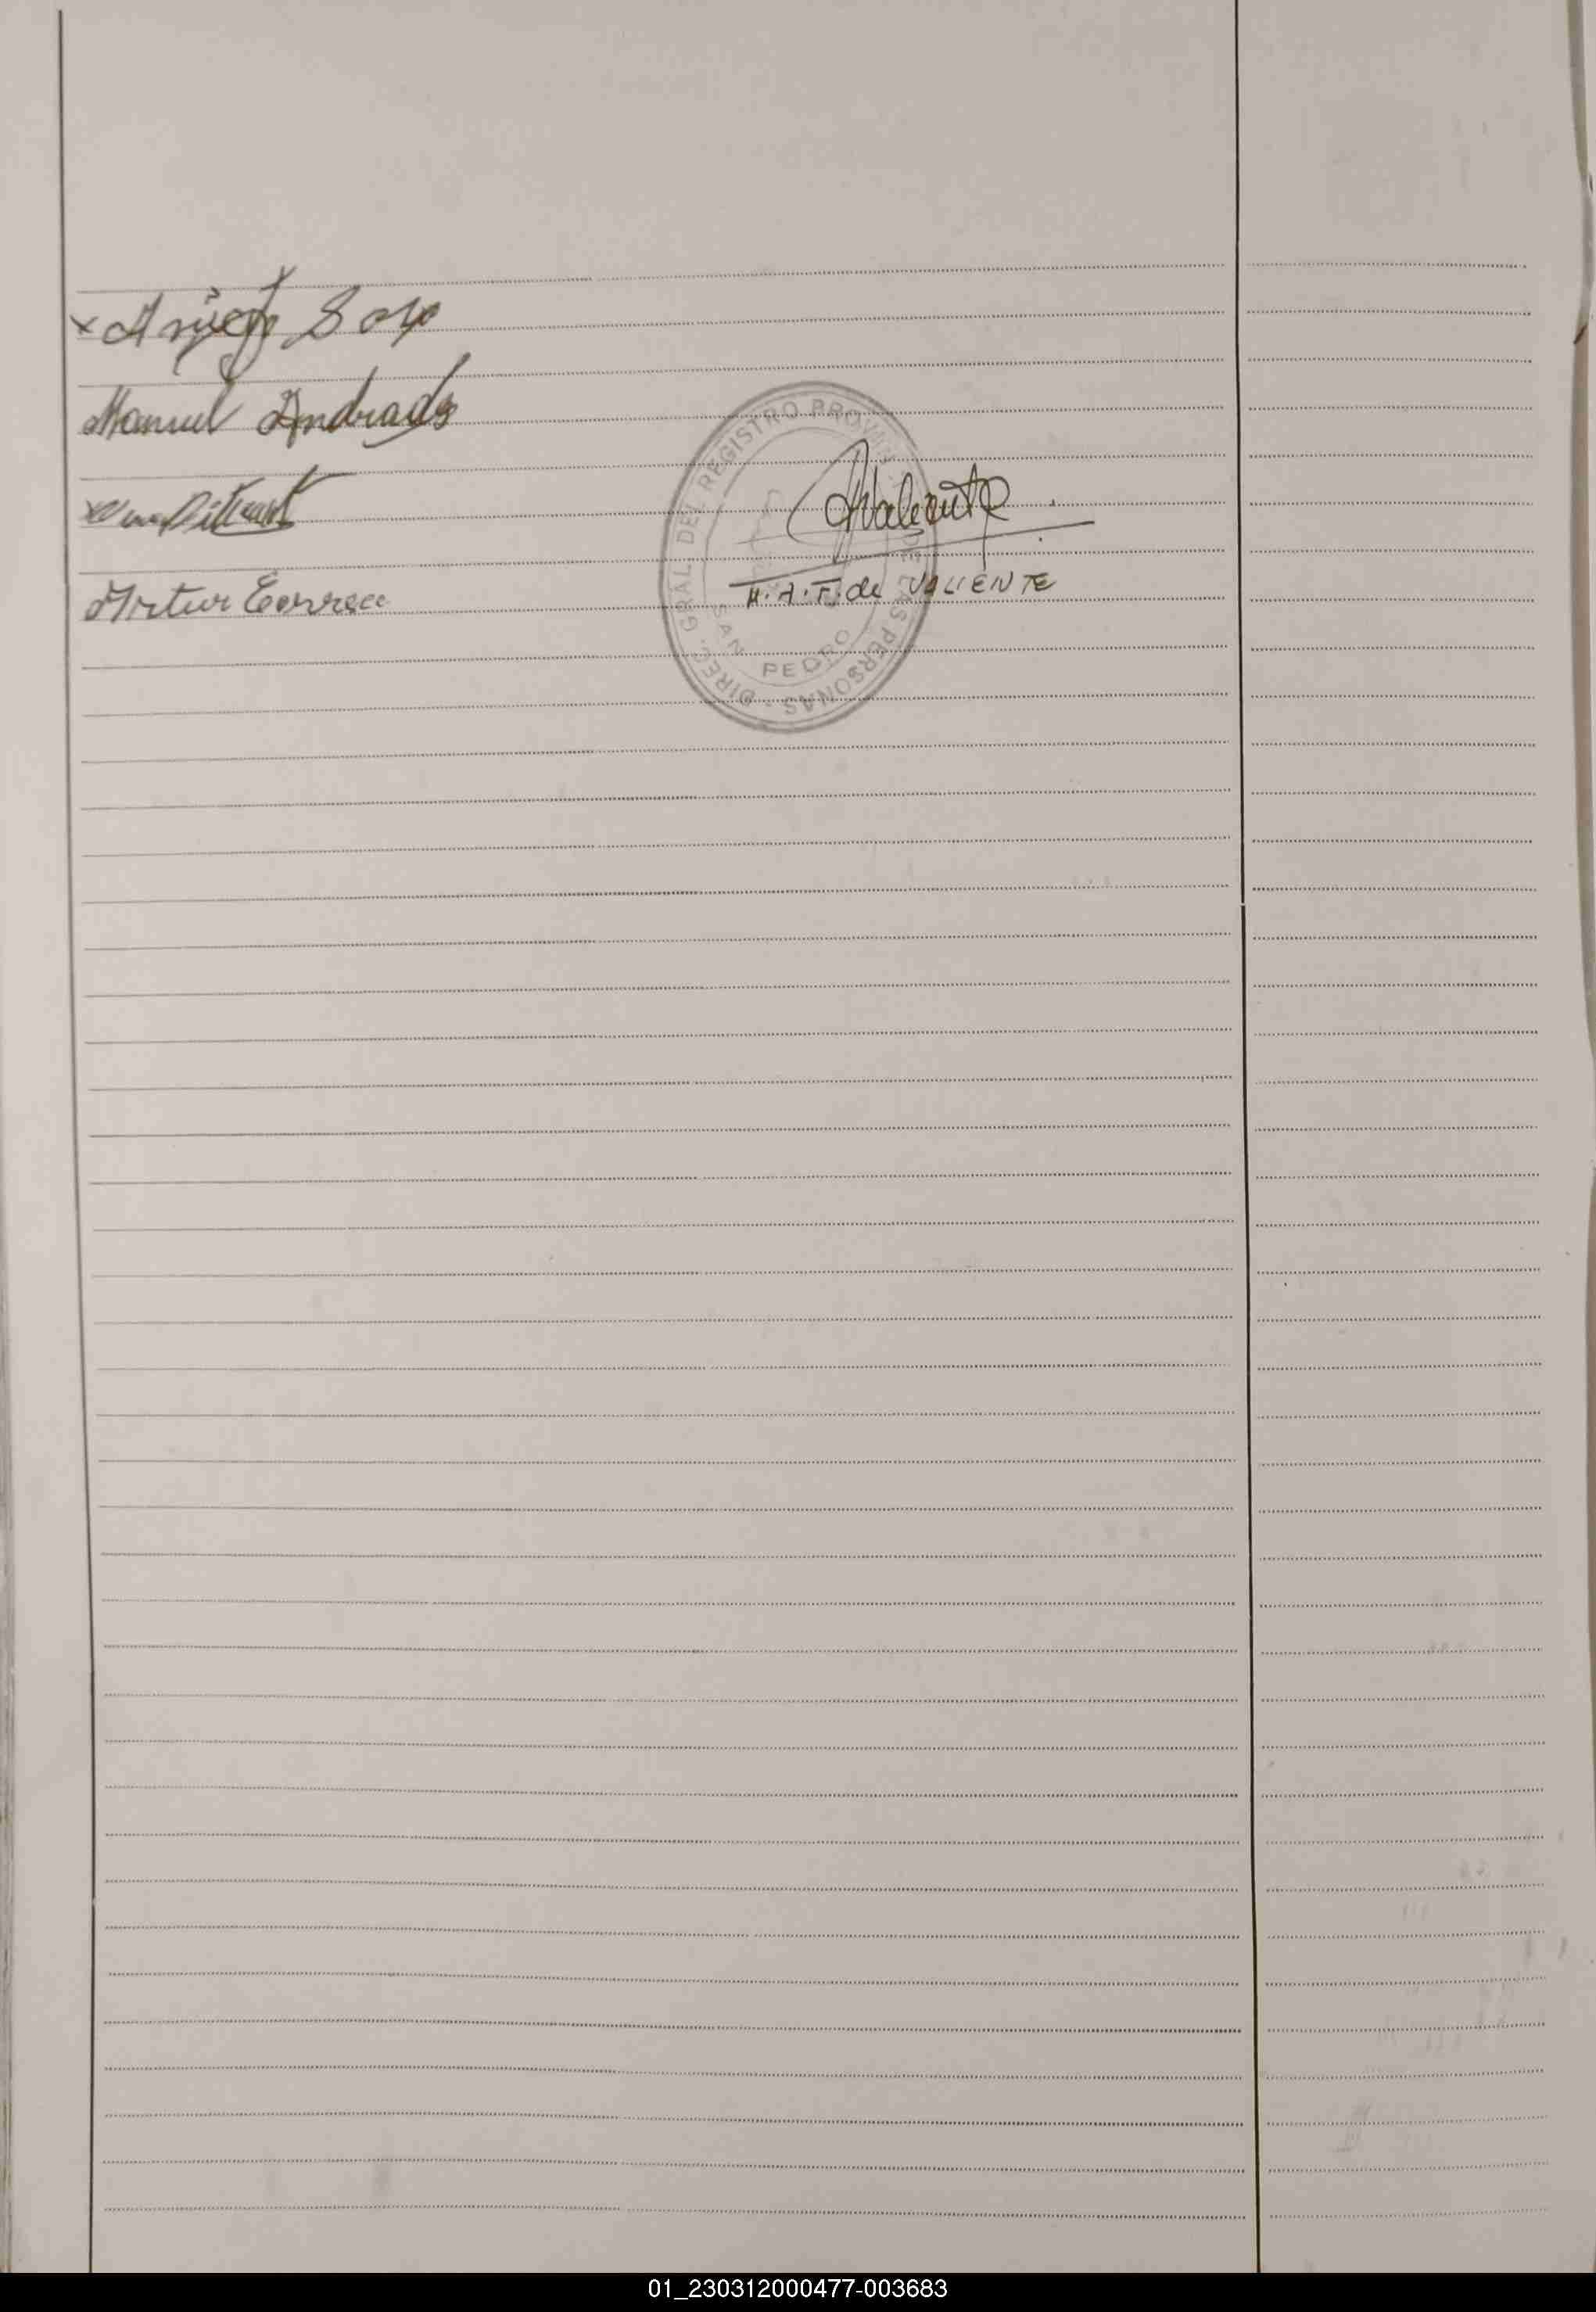 Manuel Andrade
Artur Correa
Valiente
H. A. F. de VALIENTE
DIREC. GRAL. DEL REGISTRO PROV. DE LAS PERSONAS
SAN PEDRO
01_230312000477-003683